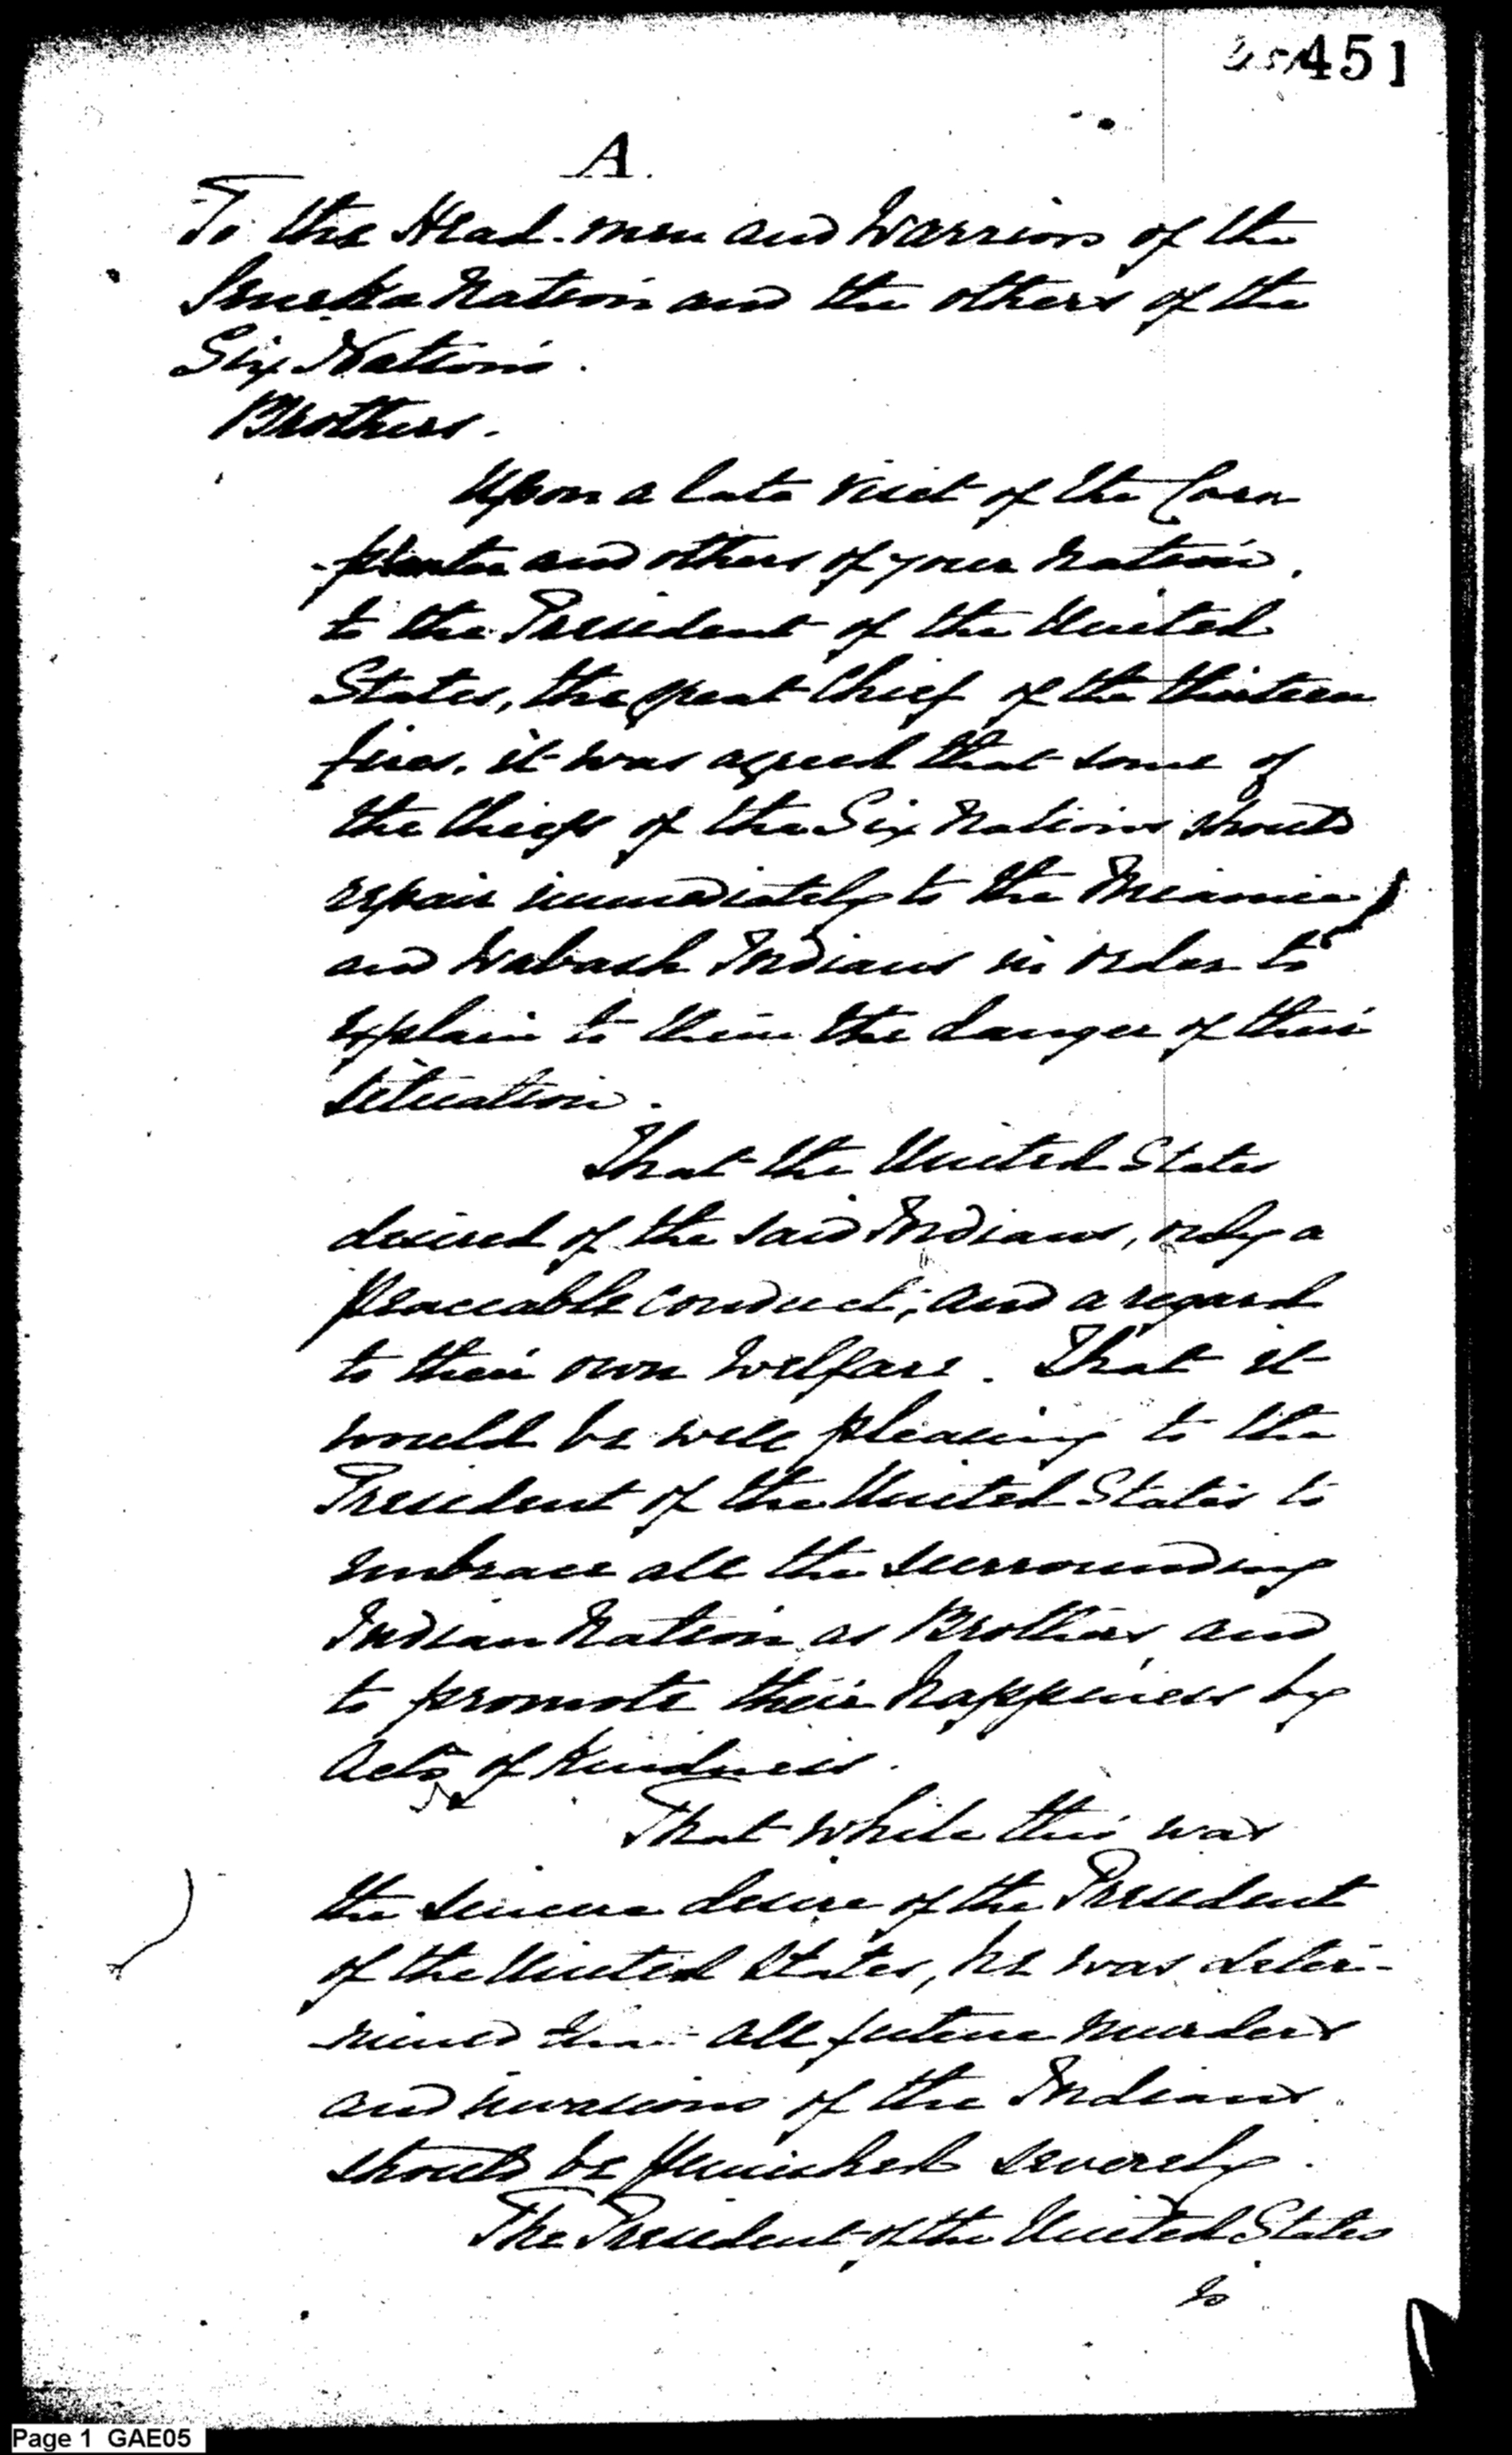 451
A.
To the Head-men and Warriors of the
Seneka Nation and the others of the
Six Nations.
Brothers.
Upon a late visit of the Corn
-planter and others of your Nation,
to the President of the United
States, the great Chief of the thirteen
fires, it was agreed that some of
the Chiefs of the Six Nations should
repair immediately to the Miamie
and Wabash Indians in order to
explain to them the danger of their
situation.
That the United States
desired of the said Indians, only a
peaceable conduct; and a regard
to their own welfare. That it
would be well pleasing to the
President of the United States to
embrace all the surrounding
Indian Nation as Brothers and
to promote their happiness by
acts of kindness.
That while this was
the sincere desire of the President
of the United States, he was deter-
mined that all future murders
and invasions of the Indians
should be punished severely.
The President of the United States
is
Page 1 GAE05